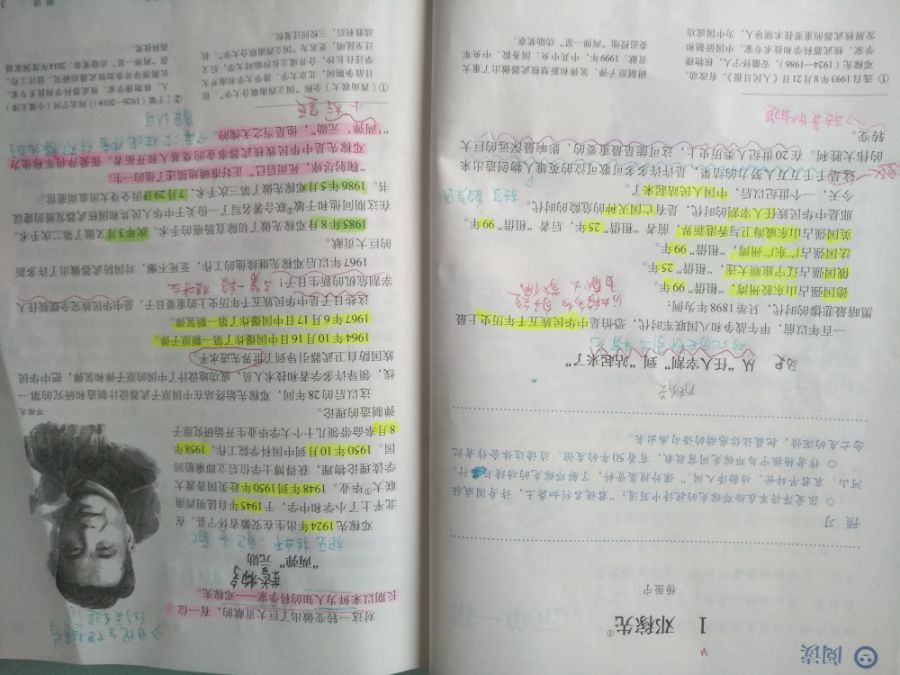 阅读
1 邓稼先①
杨振宁
预习
○ 张爱萍将军在给邓稼先的挽诗中写道:“君视名利如粪土,许身国威壮
河山。哀君早辞世,功勋泽人间。”课外搜集资料,了解邓稼先的功绩与品行。
○ 作者杨振宁与邓稼先同窗数载,有着50年的友谊。边读边体会作者纪
念亡友的深情,把最让你感动的语句画出来。
邓稼先
从“任人宰割”到“站起来了”
历史
一百年以前,甲午战争和八国联军时代,恐怕是中华民族五千年历史上最
黑暗最悲惨的时代,只举1898年为例:
德国强占山东胶州湾,“租借”99年。
俄国强占辽宁旅顺大连,“租借”25年。
法国强占广东广州湾,“租借”99年。
英国强占山东威海卫与香港新界,前者“租借”25年,后者“租借”99年。
那是中华民族任人宰割的时代,是有亡国灭种的危险的时代。
今天,一个世纪以后,中国人民站起来了。
这是千千万万人努力的结果,是许许多多可歌可泣的英雄人物创造出来
的伟大胜利。在20世纪人类历史上,这可能是最重要的、影响最深远的巨大
转变。
① 选自1993年8月21日《人民日报》。有改动。
邓稼先(1924—1986),安徽怀宁人,核物理
学家、核武器科学技术专家,中国研制和
发展核武器的重要技术领导人,为中国成功
研制原子弹、氢弹和新型核武器做出了重大
贡献。1999年,中共中央、国务院、中央军
委追授他“两弹一星”功勋奖章。
对这一转变做出了巨大贡献的,有一位
长期以来鲜为人知的科学家——邓稼先。
“两弹”元勋
邓稼先1924年出生在安徽省怀宁县。在
北平上了小学和中学,于1945年自昆明西南
联大①毕业。1948年到1950年赴美国普渡大
学读理论物理,获得博士学位后立即乘船回
国,1950年10月到中国科学院工作。1958年
8月奉命带领几十个大学毕业生开始研究原子
弹制造的理论。
邓稼先
这以后的28年间,邓稼先始终站在中国原子武器设计制造和研究的第一
线,领导许多学者和技术人员,成功地设计了中国的原子弹和氢弹,把中华民
族国防自卫武器引导到了世界先进水平。
1964年10月16日中国爆炸了第一颗原子弹。
1967年6月17日中国爆炸了第一颗氢弹。
这些日子是中华民族五千年历史上的重要日子,是中华民族完全摆脱任人
宰割危机的新生日子!
1967年以后邓稼先继续他的工作,至死不懈,对国防武器做出了许多新
的巨大贡献。
1985年8月邓稼先做了切除直肠癌的手术。次年3月又做了第二次手术。
在这期间他和于敏②联合署名写了一份关于中华人民共和国核武器发展的建议
书。1986年5月邓稼先做了第三次手术,7月29日因全身大出血而逝世。
“鞠躬尽瘁,死而后已”正好准确地描述了他的一生。
邓稼先是中华民族核武器事业的奠基人和开拓者。张爱萍将军称他为
“‘两弹’元勋”,他是当之无愧的。
① 〔西南联大〕全称“国立西南联合大学”。抗
日战争期间,北京大学、清华大学和南开大
学迁往长沙,合并成立长沙临时大学,后又
迁至昆明,更名为“国立西南联合大学”。抗
战胜利后,三校迁回复校。
② 〔于敏(1926—2019)〕河北宁河(今属天津)
人,核物理学家、核武器科学技术专家,
长期领导并参加核武器的研制、设计工作。
获“两弹一星”功勋奖章、2014年度国家最
高科技奖。